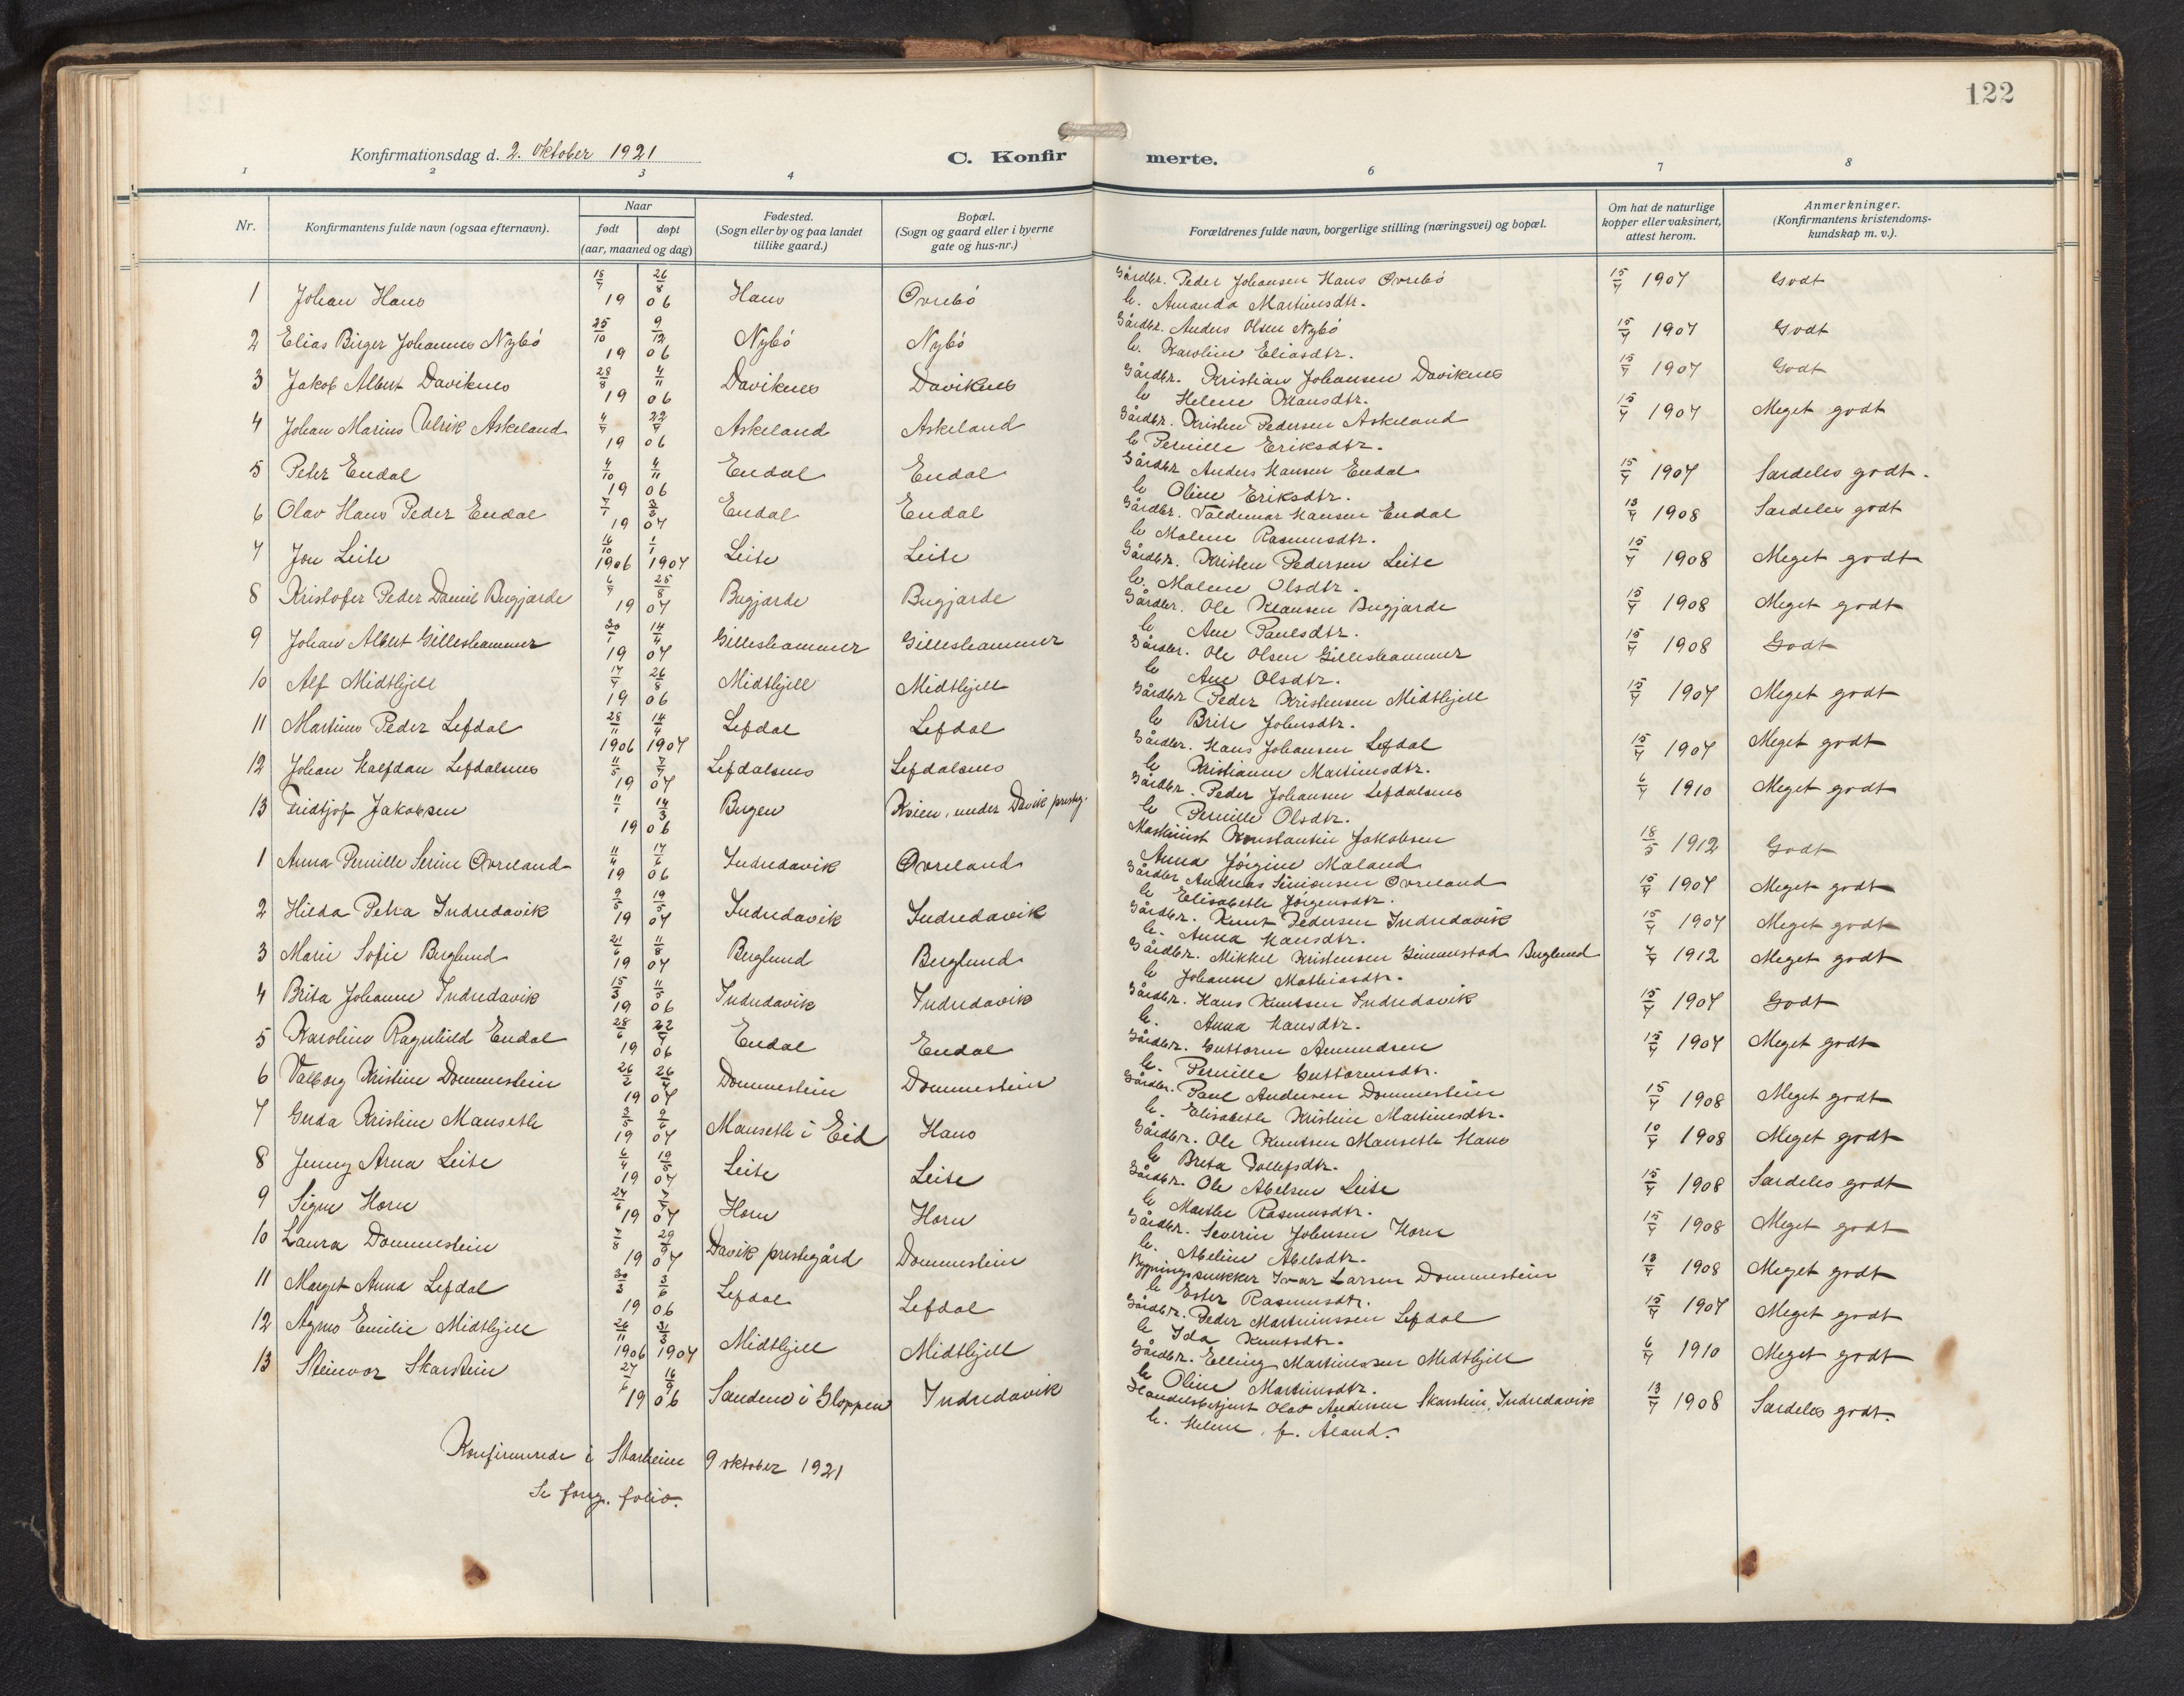 122
Konfirmationsdag d. 2. Oktober 1921
C. Konfirmerte.
1 2 3 4 6 7 8
Nr. | Konfirmantens fulde navn (ogsaa efternavn). | Naar født døpt (aar, maaned og dag) | Fødested. (Sogn eller by og paa landet tillike gaard.) | Bopæl. (Sogn og gaard eller i byerne gate og hus-nr.) | Forældrenes fulde navn, borgerlige stilling (næringsvei) og bopæl. | Om hat de naturlige kopper eller vaksinert, attest herom. | Anmerkninger. (Konfirmantens kristendoms-kundskap m. v.).
1 Johan Haus 15/7 26/8 1906 Haus Øvrebö Gårdbr. Peder Johansen Haus Øvrebö 15/7 1907 Godt
h. Amanda Martinusdtr.
2 Elias Birger Johannes Nybö 25/10 9/12 1906 Nybö Nybö Gårdbr. Anders Olsen Nybö 15/7 1907 Godt
h. Karoline Eliasdtr.
3 Jakob Albert Daviknes 28/8 4/11 1906 Daviknes Daviknes Gårdbr. Kristian Johansen Daviknes 15/7 1907 Godt
h Helene Klausdtr.
4 Johan Marius Ulrik Askeland 4/7 22/7 1906 Askeland Askeland Gårdbr. Kristen Pedersen Askeland 15/7 1907 Meget godt
h Pernille Eriksdtr.
5 Peter Endal 4/10 4/11 1906 Endal Endal Gårdbr Anders Hansen Endal 15/7 1907 Særdeles godt.
h Oline Eriksdtr.
6 Olav Hans Peder Endal 7/1 3/3 1907 Endal Endal Gårdbr. Valdemar Hansen Endal 13/7 1908 Særdeles godt
h Malene Rasmusdtr.
7 Jon Leite 16/10 1/1 1906 1907 Leite Leite Gårdbr. Kristen Pedersen Leite 15/7 1908 Meget godt
h. Malene Olsdtr.
8 Kristofer Peder Daniel Bugjærde 6/7 25/8 1907 Bugjærde Bugjærde Gårdbr. Ole Klausen Bugjærde 15/7 1908 Meget godt
h Ane Paulsdtr.
9 Johan Albert Gilleshammer 30/1 14/4 1907 Gilleshammer Gilleshammer Gårdbr. Ole Olsen Gilleshammer 15/7 1908 Godt
h Ane Olsdtr.
10 Alf Midthjell 17/7 26/8 1906 Midthjell Midthjell Gårdbr Peder Kristensen Midthjell 15/7 1907 Meget godt
h Brite Johnsdtr.
11 Martinus Peder Lefdal 28/11 14/4 1906 1907 Lefdal Lefdal Gårdbr. Hans Johansen Lefdal 15/7 1907 Meget godt
h Kristianne Martinusdtr.
12 Johan Halfdan Lefdalsnes 11/5 7/7 1907 Lefdalsnes Lefdalsnes Gårdbr. Peder Johansen Lefdalsnes 6/7 1910 Meget godt
h Pernille Olsdtr.
13 Fridtjof Jakobsen 11/1 14/3 1906 Bergen Kvien, under Davik presteg. Maskinist Konstantin Jakobsen 18/5 1912 Godt
Anna Jörgine Maland
1 Anna Pernille Serine Øvreland 11/4 17/6 1906 Indredavik Øvreland Gårdbr Andreas Simonsen Øvreland 15/7 1907 Meget godt
h Elisabeth Jörgensdtr.
2 Hilda Petra Indredavik 9/5 19/5 1907 Indredavik Indredavik Gårdbr. Knut Pedersen Indredavik 15/7 1907 Meget godt
h. Anna Hansdtr.
3 Marie Sofie Berglund 21/6 11/8 1907 Berglund Berglund Gårdbr. Mikkel Kristensen Gimmestad Berglund 7/7 1912 Meget godt
h Johanne Mathiasdtr.
4 Brita Johanne Indredavik 15/3 11/5 1906 Indredavik Indredavik Gårdbr. Hans Knutsen Indredavik 15/7 1907 Godt
h. Anna Hansdtr.
5 Karoline Ragnhild Endal 28/6 22/7 1906 Endal Endal Gårdbr. Guttorm Amundsen 15/7 1907 Meget godt
h. Pernille Guttormsdtr.
6 Valborg Kristine Dommestein 26/2 26/4 1907 Dommestein Dommestein Gårdbr. Paul Andersen Dommestein 15/7 1908 Meget godt
h. Elisabeth Kristine Martinusdtr.
7 Gerda Kristine Manseth 3/5 9/6 1907 Manseth i Eid Haus Gårdbr. Ole Knutsen Manseth Haus 10/7 1908 Meget godt
h Brita Tollefsdtr.
8 Jenny Arna Leite 6/4 19/5 1907 Leite Leite Gårdbr. Ole Abelsen Leite 15/7 1908 Særdeles godt
h Marthe Rasmusdtr.
9 Signe Horn 24/6 7/7 1907 Horn Horn Gårdbr. Severin Johnsen Horn 15/7 1908 Meget godt
h. Abeline Abelsdtr.
10 Laura Dommestein 7/8 29/9 1907 Davik prestegård Dommestein Bygningssnekker Ivar Larsen Dommestein 13/7 1908 Meget godt
h Ester Rasmusdtr.
11 Marget Anna Lefdal 30/3 3/6 1906 Lefdal Lefdal Gårdbr. Peder Martinussen Lefdal 15/7 1907 Meget godt
h Ida Knutsdtr.
12 Agnes Emilie Midthjell 26/11 31/3 1906 1907 Midthjell Midthjell Gårdbr. Elling Martinussen Midthjell 6/7 1910 Meget godt
h Oline Martinusdtr.
13 Steinvor Skarstein 27/6 16/9 1906 Sandene i Gloppen Indredavik Handelsbetjent Olav Andersen Skarstein, Indredavik 13/7 1908 Særdeles godt.
h. Helene, f. Åland.
Konfirmerede i Starheim 9 oktober 1921
Se forrg. folio.